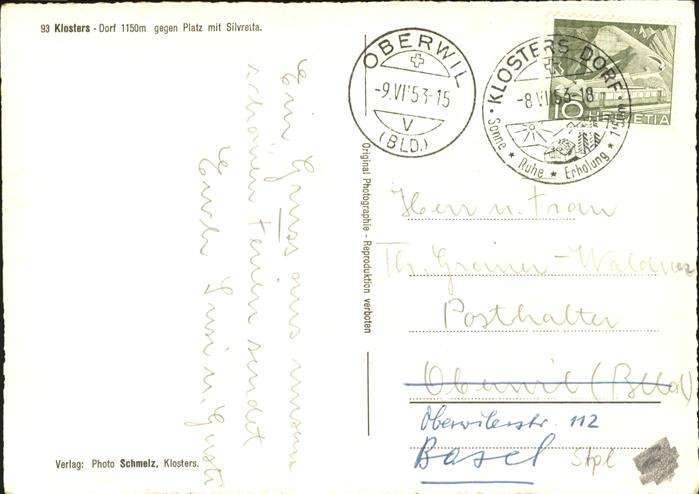 93 Klosters - Dorf 1150m gegen Platz mit Silvretta.
Ein Gruss aus unsern
schönen Ferien sendet
Euch Susi u. Gusti
Verlag: Photo Schmelz, Klosters.
Original Photographie - Reproduktion verboten
OBERWIL
-9.VI'53-15
V
(BLD.)
KLOSTERS DORF
-8.VI.53-18
Sonne ★ Ruhe ★ Erholung ★
10
HELVETIA
Herr u. Frau
Th. Greiner-Waldner
Posthalter
Oberwil (Blld)
Oberwilerstr. 112
Basel